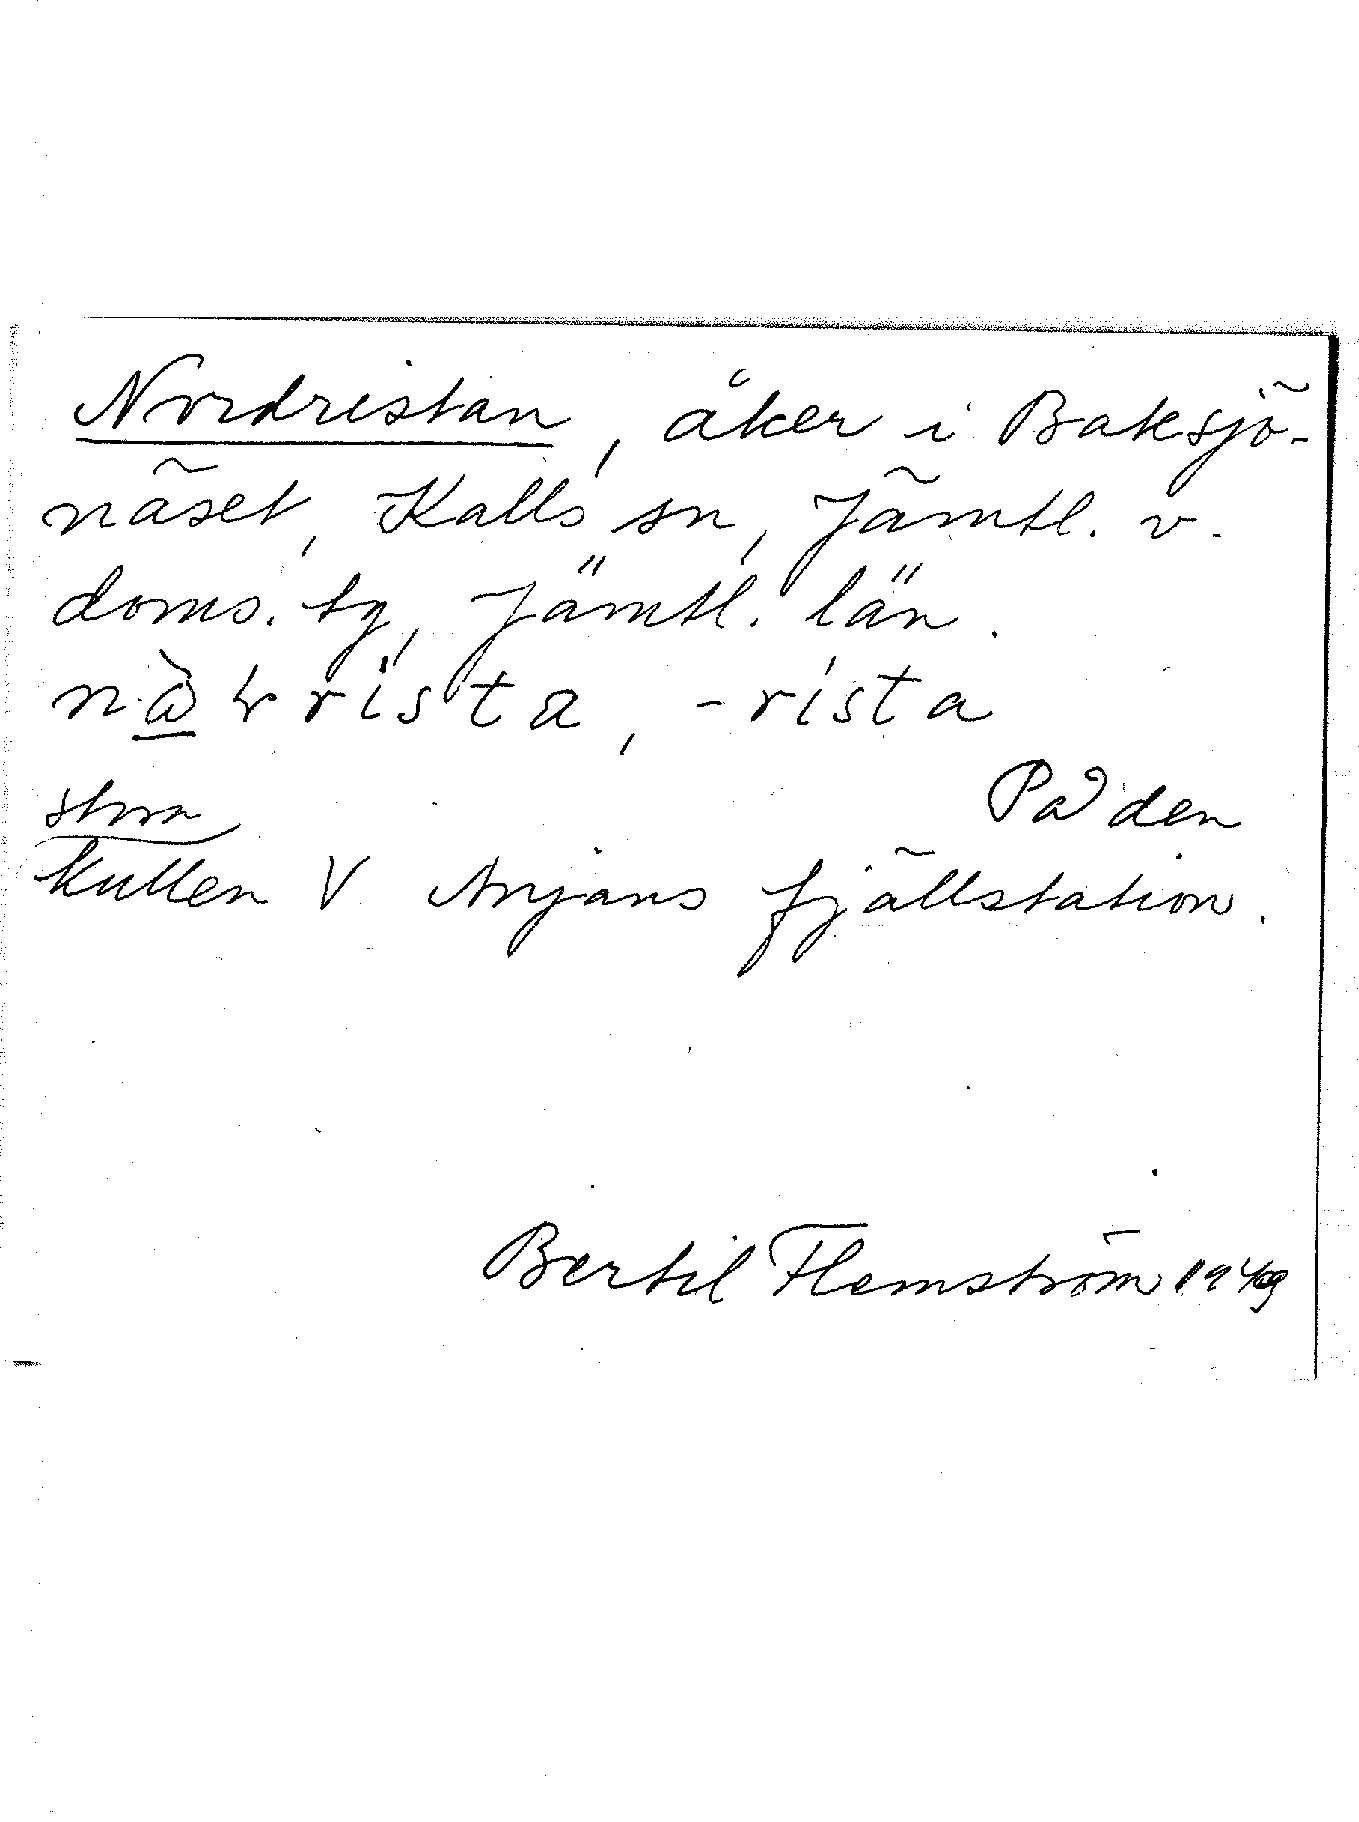 Nordristan, åker i Baksjö-
näset, Kalls sn, Jämtl. v.
doms. tg, Jämtl. län.
rista, -rista
På den
stora
kullen V Anjans fjällstation.
Bertil Flemström 1949